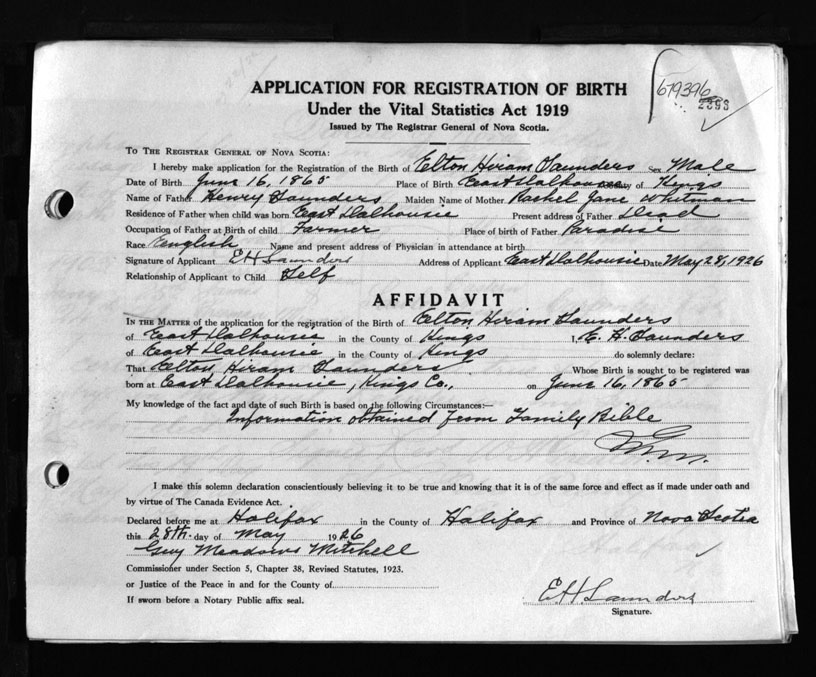 APPLICATION FOR REGISTRATION OF BIRTH
Under the Vital Statistics Act 1919
Issued by The Registrar General of Nova Scotia.
679396
2393
TO THE REGISTRAR GENERAL OF NOVA SCOTIA:
I hereby make application for the Registration of the Birth of Elton Hiram Saunders Sex Male
Date of Birth June 16, 1865 Place of Birth East Dalhousie County of Kings
Name of Father Henry Saunders Maiden Name of Mother Rachel Jane Whitman
Residence of Father when child was born East Dalhousie Present address of Father Dead
Occupation of Father at Birth of child Farmer Place of birth of Father Paradise
Race English Name and present address of Physician in attendance at birth
Signature of Applicant E H Saunders Address of Applicant East Dalhousie Date May 28, 1926
Relationship of Applicant to Child Self
AFFIDAVIT
IN THE MATTER of the application for the registration of the Birth of Elton Hiram Saunders
of East Dalhousie in the County of Kings I, E. H. Saunders
of East Dalhousie in the County of Kings do solemnly declare:
That Elton Hiram Saunders Whose Birth is sought to be registered was
born at East Dalhousie, Kings Co., on June 16, 1865
My knowledge of the fact and date of such Birth is based on the following Circumstances:—
Information obtained from Family Bible
I make this solemn declaration conscientiously believing it to be true and knowing that it is of the same force and effect as if made under oath and
by virtue of The Canada Evidence Act.
Declared before me at Halifax in the County of Halifax and Province of Nova Scotia
this 28th day of May 1926
Guy Meadows Mitchell
Commissioner under Section 5, Chapter 38, Revised Statutes, 1923.
or Justice of the Peace in and for the County of
If sworn before a Notary Public affix seal.
E H Saunders
Signature.